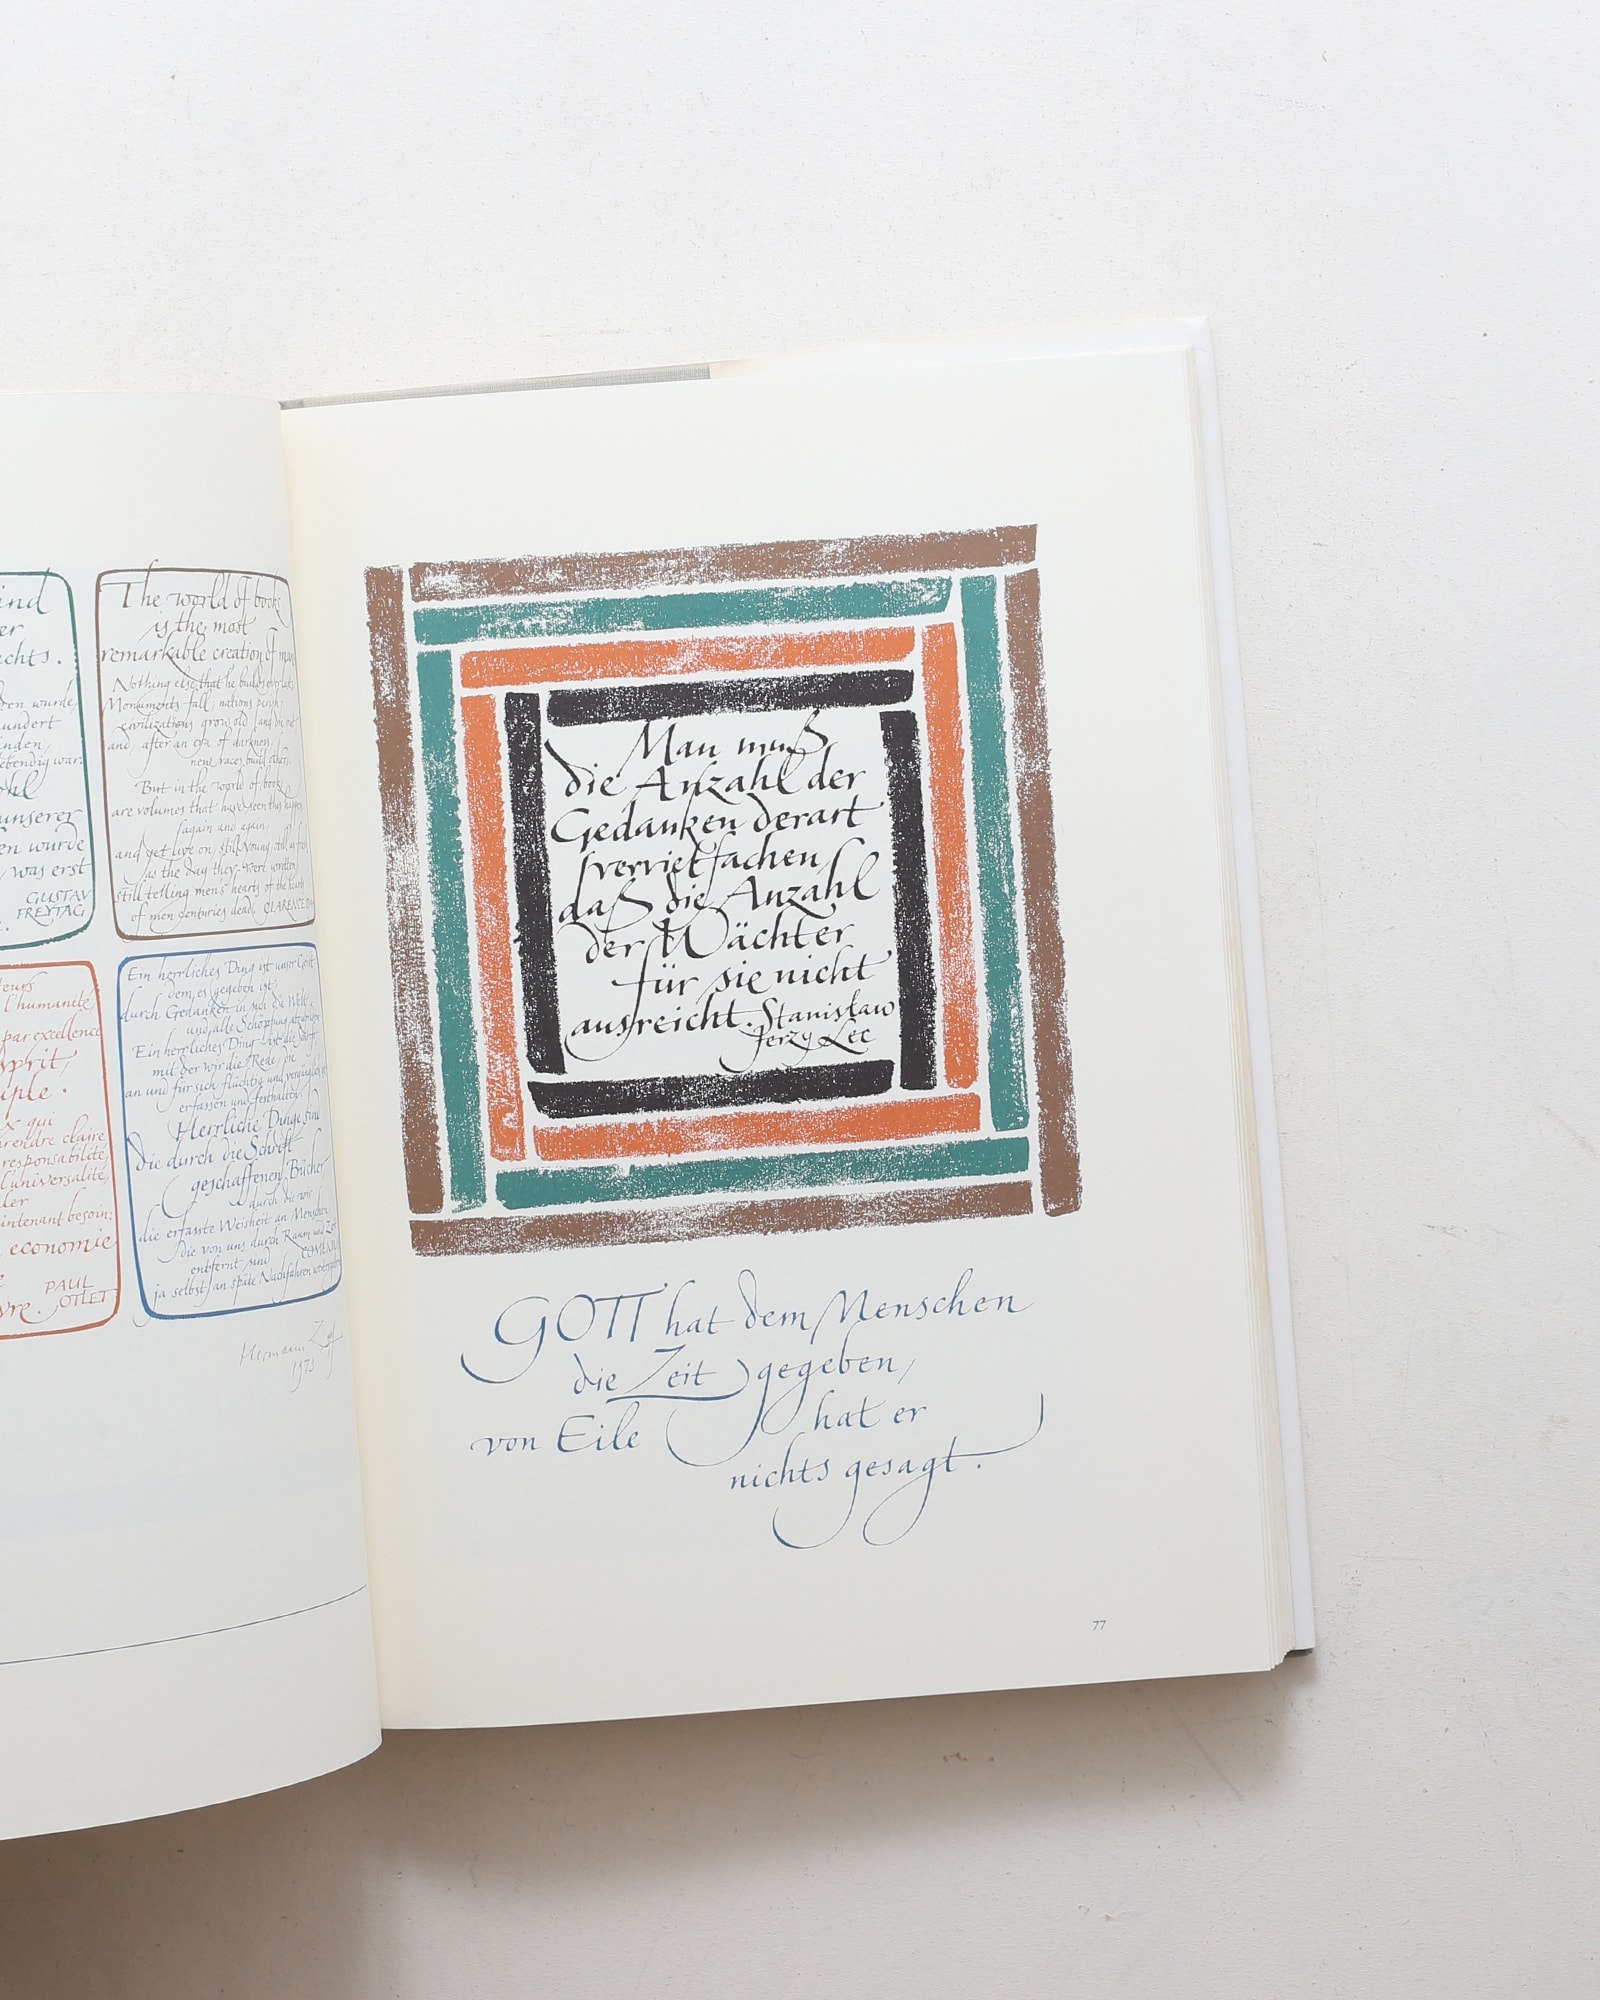 ind
er
chts.
den wurde,
hundert
enden,
ebendig war.
ohl
unserer
en wurde
, was erst
GUSTAV
FREYTAG
The world of books
is the most
remarkable creation of man
Nothing else that he builds ever lasts
Monuments fall, nations perish,
civilizations grow old and die out
and after an era of darkness
new races build others.
But in the world of books
are volumes that have seen this happen
again and again
and yet live on still young, still as fresh
as the day they were written,
still telling men's hearts of the hearts
of men centuries dead. CLARENCE
teurs
l'humanité
par excellence
sprit,
iple.
x qui
rendre claire
responsabilité,
l'universalité,
ler
aintenant besoin:
economie
PAUL
vre. OTLET
Ein herrliches Ding ist unser Geist
dem es gegeben ist,
durch Gedanken in sich die Welt
und alle Schöpfung
Ein herrliches Ding ist die
mit der wir die Rede, die
an und für sich flüchtig und
erfassen und festhalten.
Herrliche Dinge sind
die durch die Schrift
geschaffenen Bücher,
durch die wir
die erfasste Weisheit an Menschen
die von uns durch Raum und Zeit
entfernt sind COMENIUS
ja selbst an späte Nachfahren
Hermann Zapf
1973
Man muß
die Anzahl der
Gedanken derart
vervielfachen
daß die Anzahl
der Wächter
für sie nicht
ausreicht. Stanisław
Jerzy Lec
GOTT hat dem Menschen
die Zeit gegeben,
von Eile hat er
nichts gesagt.
77